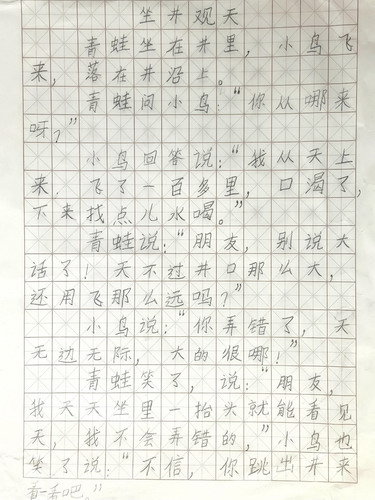 坐井观天
青蛙坐在井里，小鸟飞
来，落在井沿上。
青蛙问小鸟：“你从哪来
呀？”
小鸟回答说：“我从天上
来，飞了一百多里，口渴了，
下来找点儿水喝。”
青蛙说：“朋友，别说大
话了！天不过井口那么大，
还用飞那么远吗？”
小鸟说：“你弄错了，天
无边无际，大的很哪！”
青蛙笑了，说：“朋友，
我天天坐里一抬头就能看见
天，我不会弄错的，”小鸟也
笑了说：“不信，你跳出井来
看一看吧。”